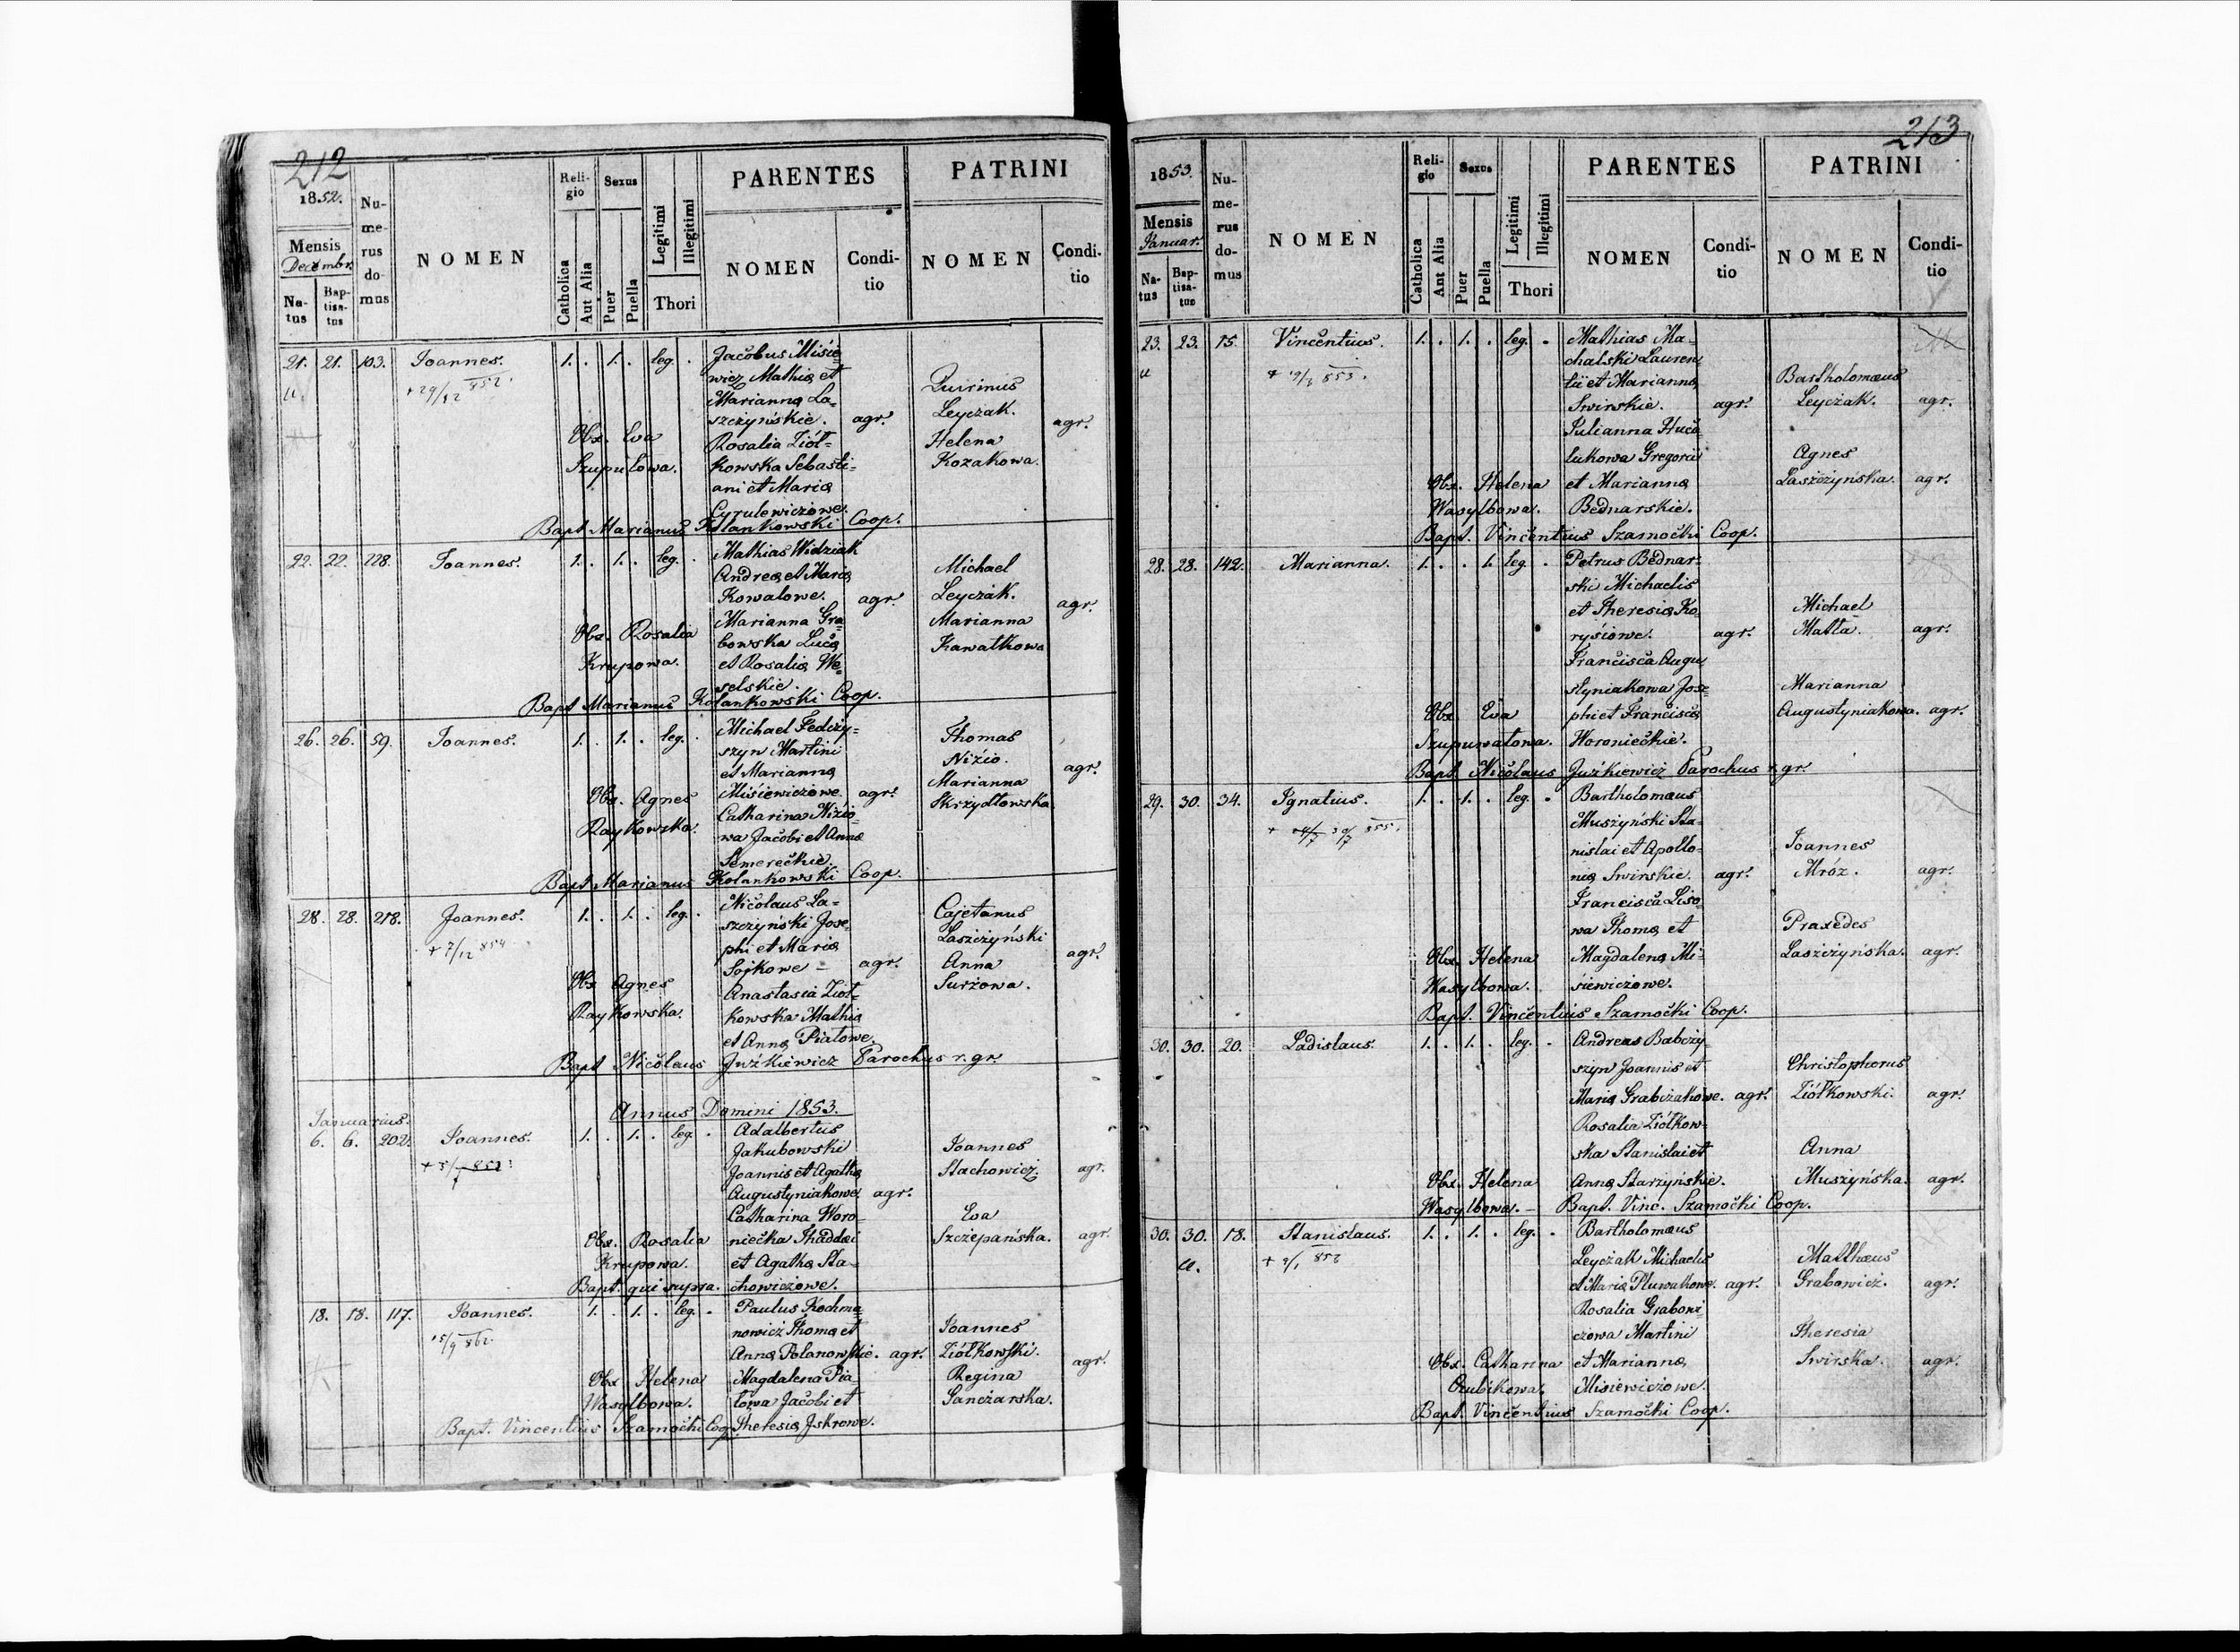 212
1852.
Mensis
Decembr.
Na-
tus
Bap-
tisa-
tus
Nu-
me-
rus
do-
mus
NOMEN
Reli-
gio
Catholica
Aut Alia
Sexus
Puer
Puella
Legitimi
Illegitimi
Thori
PARENTES
NOMEN
Condi-
tio
PATRINI
NOMEN
Condi-
tio
21. 21. 103. Joannes. 1. . 1. . leg. .
Jacobus Misie=
wicz Mathiæ et
Mariannæ La=
szczyńskie. agr.
Rosalia Ziół=
kowska Sebasti=
ani et Mariæ
Cyrulewiczowe.
Quirinus
Leyczak.
Helena
Kozakowa.
agr.
+ 29/12 852.
Obs. Eva
Szupułowa.
Bapt Marianus Kolankowski Coop.
22. 22. 228. Joannes. 1. . 1. . leg. .
Mathias Widziak
Andreæ et Mariæ
Kowalowe. agr.
Marianna Gra=
bowska Lucæ
et Rosaliæ We=
selskie.
Michael
Leyczak.
Marianna
Kawałkowa
agr.
Obs. Rosalia
Krupowa.
Bapt Marianus Kolankowski Coop.
26. 26. 59. Joannes. 1. . 1. . leg. .
Michael Fedczy=
szyn Martini
et Mariannæ
Misiewiczowe. agr.
Catharina Nizio=
wa Jacobi et Annæ
Semereckie.
Thomas
Nizio.
Marianna
Skrzydłowska
agr.
Obs. Agnes
Raykowska.
Bapt Marianus Kolankowski Coop.
28. 28. 218. Joannes. 1. . 1. . leg. .
Nicolaus La=
szczyński Jose=
phi et Mariæ
Sojkowe – agr.
Anastasia Ziół=
kowska Mathiæ
et Annæ Piałowe.
Cajetanus
Laszczyński
Anna
Surzowa.
agr.
+ 7/12 854
Obs Agnes
Raykowska.
Bapt Nicolaus Juzkiewicz Parochus r. gr.
Annus Domini 1853.
Januarius.
6. 6. 202. Joannes. 1. . 1. . leg. .
Adalbertus
Jakubowski
Joannis et Agathæ
Augustyniakowe. agr.
Catharina Woro=
niecka Thaddæi
et Agathæ Sta=
chowiczowe.
Joannes
Stachowicz. agr.
Eva
Szczepańska. agr.
Obs. Rosalia
Krupowa.
Bapt. qui supra.
18. 18. 117. Joannes. 1. . 1. . leg. .
Paulus Kochma=
nowicz Thomæ et
Annæ Polanowskie. agr.
Magdalena Pia=
łowa Jacobi et
Theresiæ Jskrowe.
Joannes
Ziółkowski.
Regina
Sanczarska.
agr.
15/9 862.
Obs Helena
Wasylbowa.
Bapt. Vincentius Szamocki Coop.
213
1853.
Mensis
Januar.
Na-
tus
Bap-
tisa-
tus
Nu-
me-
rus
do-
mus
NOMEN
Reli-
gio
Catholica
Aut Alia
Sexus
Puer
Puella
Legitimi
Illegitimi
Thori
PARENTES
NOMEN
Condi-
tio
PATRINI
NOMEN
Condi-
tio
23. 23. 15. Vincentius. 1. . 1. . leg. .
Mathias Ma=
chalski Lauren=
tii et Mariannæ
Swirskie. agr.
Julianna Huca=
lukowa Gregorii
et Mariannæ
Bednarskie.
Bartholomæus
Leyczak. agr.
Agnes
Laszczyńska. agr.
Obs. Helena
Wasylbowa.
Bapt. Vincentius Szamocki Coop.
28. 28. 142. Marianna. 1. . . 1. leg. .
Petrus Bednar=
ski Michaelis
et Theresiæ Ko=
rysiowe. agr.
Francisca Augu=
styniakowa Jose=
phi et Franciscæ
Woronieckie.
Michael
Matla. agr.
Marianna
Augustyniakowa. agr.
Obs. Eva
Szupuwałowa.
Bapt Nicolaus Juzkiewicz Parochus r. gr.
29. 30. 34. Ignatius. 1. . 1. . leg. .
Bartholomæus
Muszyński Sta=
nislai et Apollo=
niæ Swirskie. agr.
Francisca Liso=
wa Thomæ et
Magdalenæ Mi=
siewiczowe.
Joannes
Mróz. agr.
Praxedes
Laszczyńska. agr.
Obs. Helena
Wasylbowa.
Bapt. Vincentius Szamocki Coop.
30. 30. 20. Ladislaus 1. . 1. . leg. .
Andreas Babczy=
szyn Joannis et
Mariæ Grabczakowe. agr.
Rosalia Ziółkow=
ska Stanislai et
Annæ Starzyńskie.
Christophorus
Ziółkowski. agr.
Anna
Muszyńska. agr.
Obs. Helena
Wasylbowa. – Bapt. Vinc. Szamocki Coop.
30. 30. 18. Stanislaus. 1. . 1. . leg. .
Bartholomæus
Leyczak Michaelis
et Mariæ Pluwakowe. agr.
Rosalia Grabowi=
czowa Martini
et Mariannæ
Misiewiczowe.
Matthæus
Grabowicz. agr.
Theresia
Swirska. agr.
Obs. Catharina
Czubikowa.
Bapt. Vincentius Szamocki Coop.